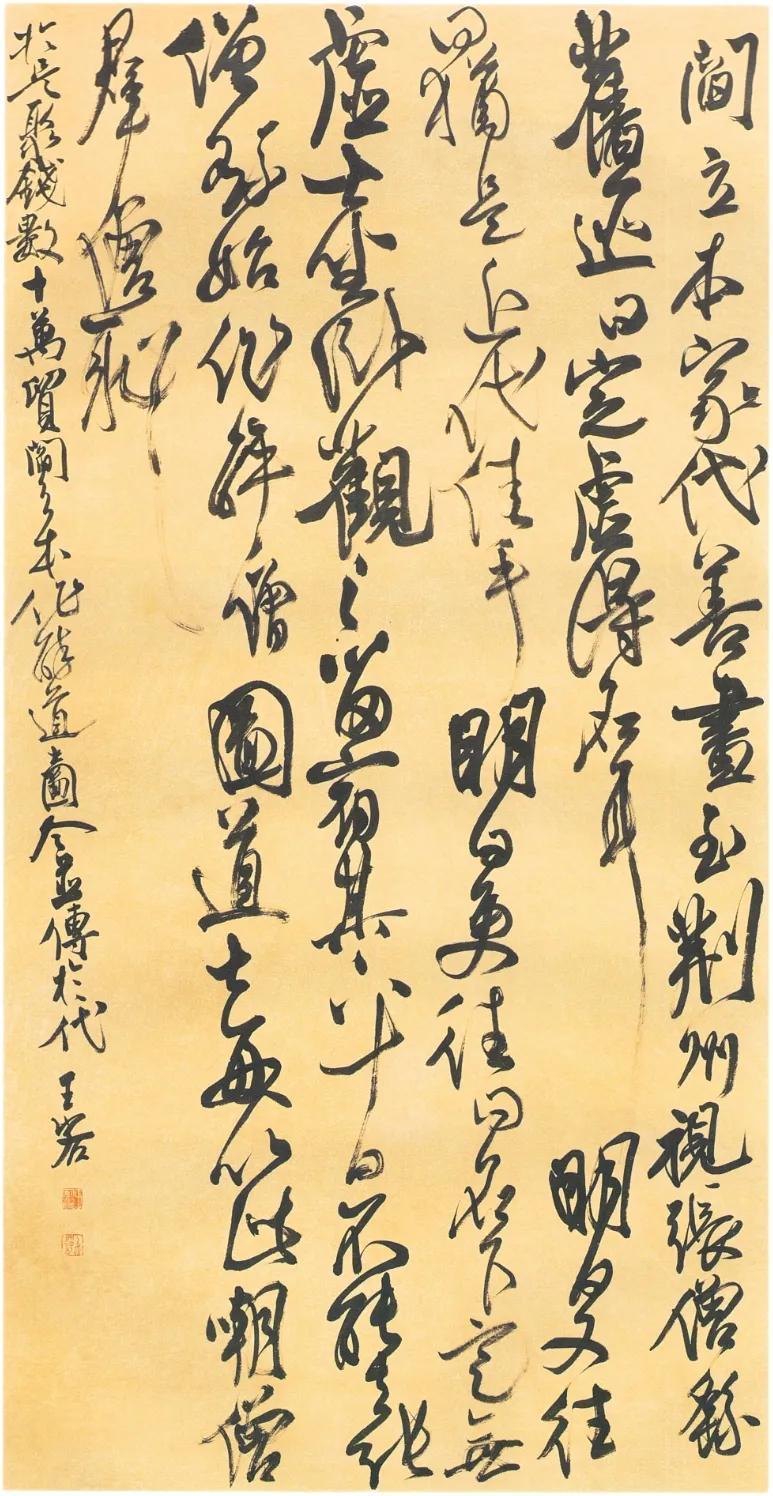 閻立本家代善畫至荊州視張僧繇
舊迹曰定虛得名耳明日又往
曰猶是近代佳手明日更往曰名下定無
虛士坐臥觀之留宿其下十日不能去張
僧繇始作醉僧圖道士每以此嘲僧
群僧耻
於是聚錢數十萬貿閻立本作醉道圖今並傳於代 王